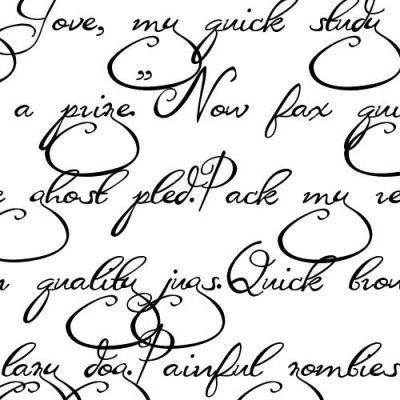 Jove, my quick study
a prize.” Now fax qui
e ghost pled. Pack my re
n quality jugs. Quick brow
lazy dog. Painful zombies